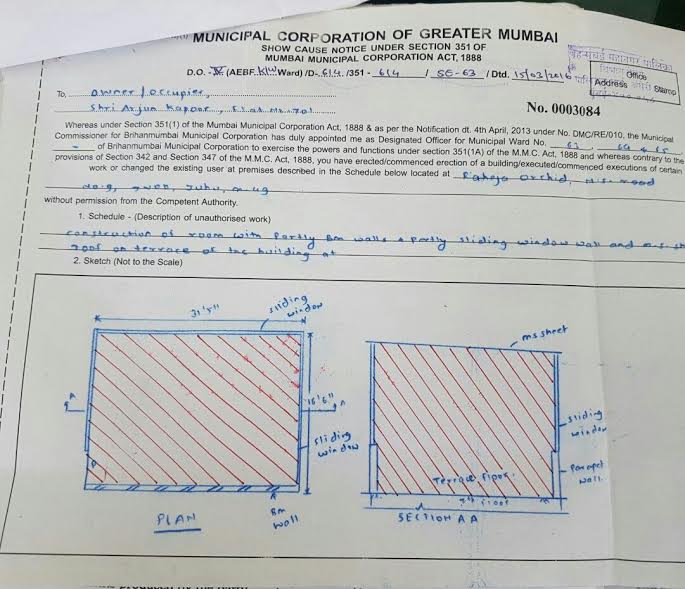 MUNICIPAL CORPORATION OF GREATER MUMBAI
SHOW CAUSE NOTICE UNDER SECTION 351 OF
MUMBAI MUNICIPAL CORPORATION ACT, 1888
बृहन्मुंबई महानगर पालिका
D.O.-IV (AEBF. K/W Ward) /D-. 614. /351 - 614 / SE-63 / Dtd. 15/03/2016
Office
Address Stamp
To, owner / occupier,
Shri Arjun Kapoor, Flat No. 701
No. 0003084
Whereas under Section 351(1) of the Mumbai Municipal Corporation Act, 1888 & as per the Notification dt. 4th April, 2013 under No. DMC/RE/010, the Municipal
Commissioner for Brihanmumbai Municipal Corporation has duly appointed me as Designated Officer for Municipal Ward No. 63, 64 & 65
- of Brihanmumbai Corporation to exercise the powers and functions under section 351(1A) of the M.M.C. Act, 1888 and whereas contrary to the
provisions of Section 342 and Section 347 of the M.M.C. Act, 1888, you have erected/commenced erection of a building/executed/commenced executions of certain
work or changed the existing user at premises described in the Schedule below located at Raheja Orchid, N.S. road
no. 9, Juhu,
without permission from the Competent Authority.
1. Schedule - (Description of unauthorised work)
construction of room with partly Bm walls & partly sliding window wall and m.s sh
roof on terrace of the building at
2. Sketch (Not to the Scale)
sliding
window
ms sheet
A
16'6"
A
sliding
window
sliding
window
D
Parapet
wall.
Terrace floor.
floor
Bm
wall
PLAN
SECTION AA